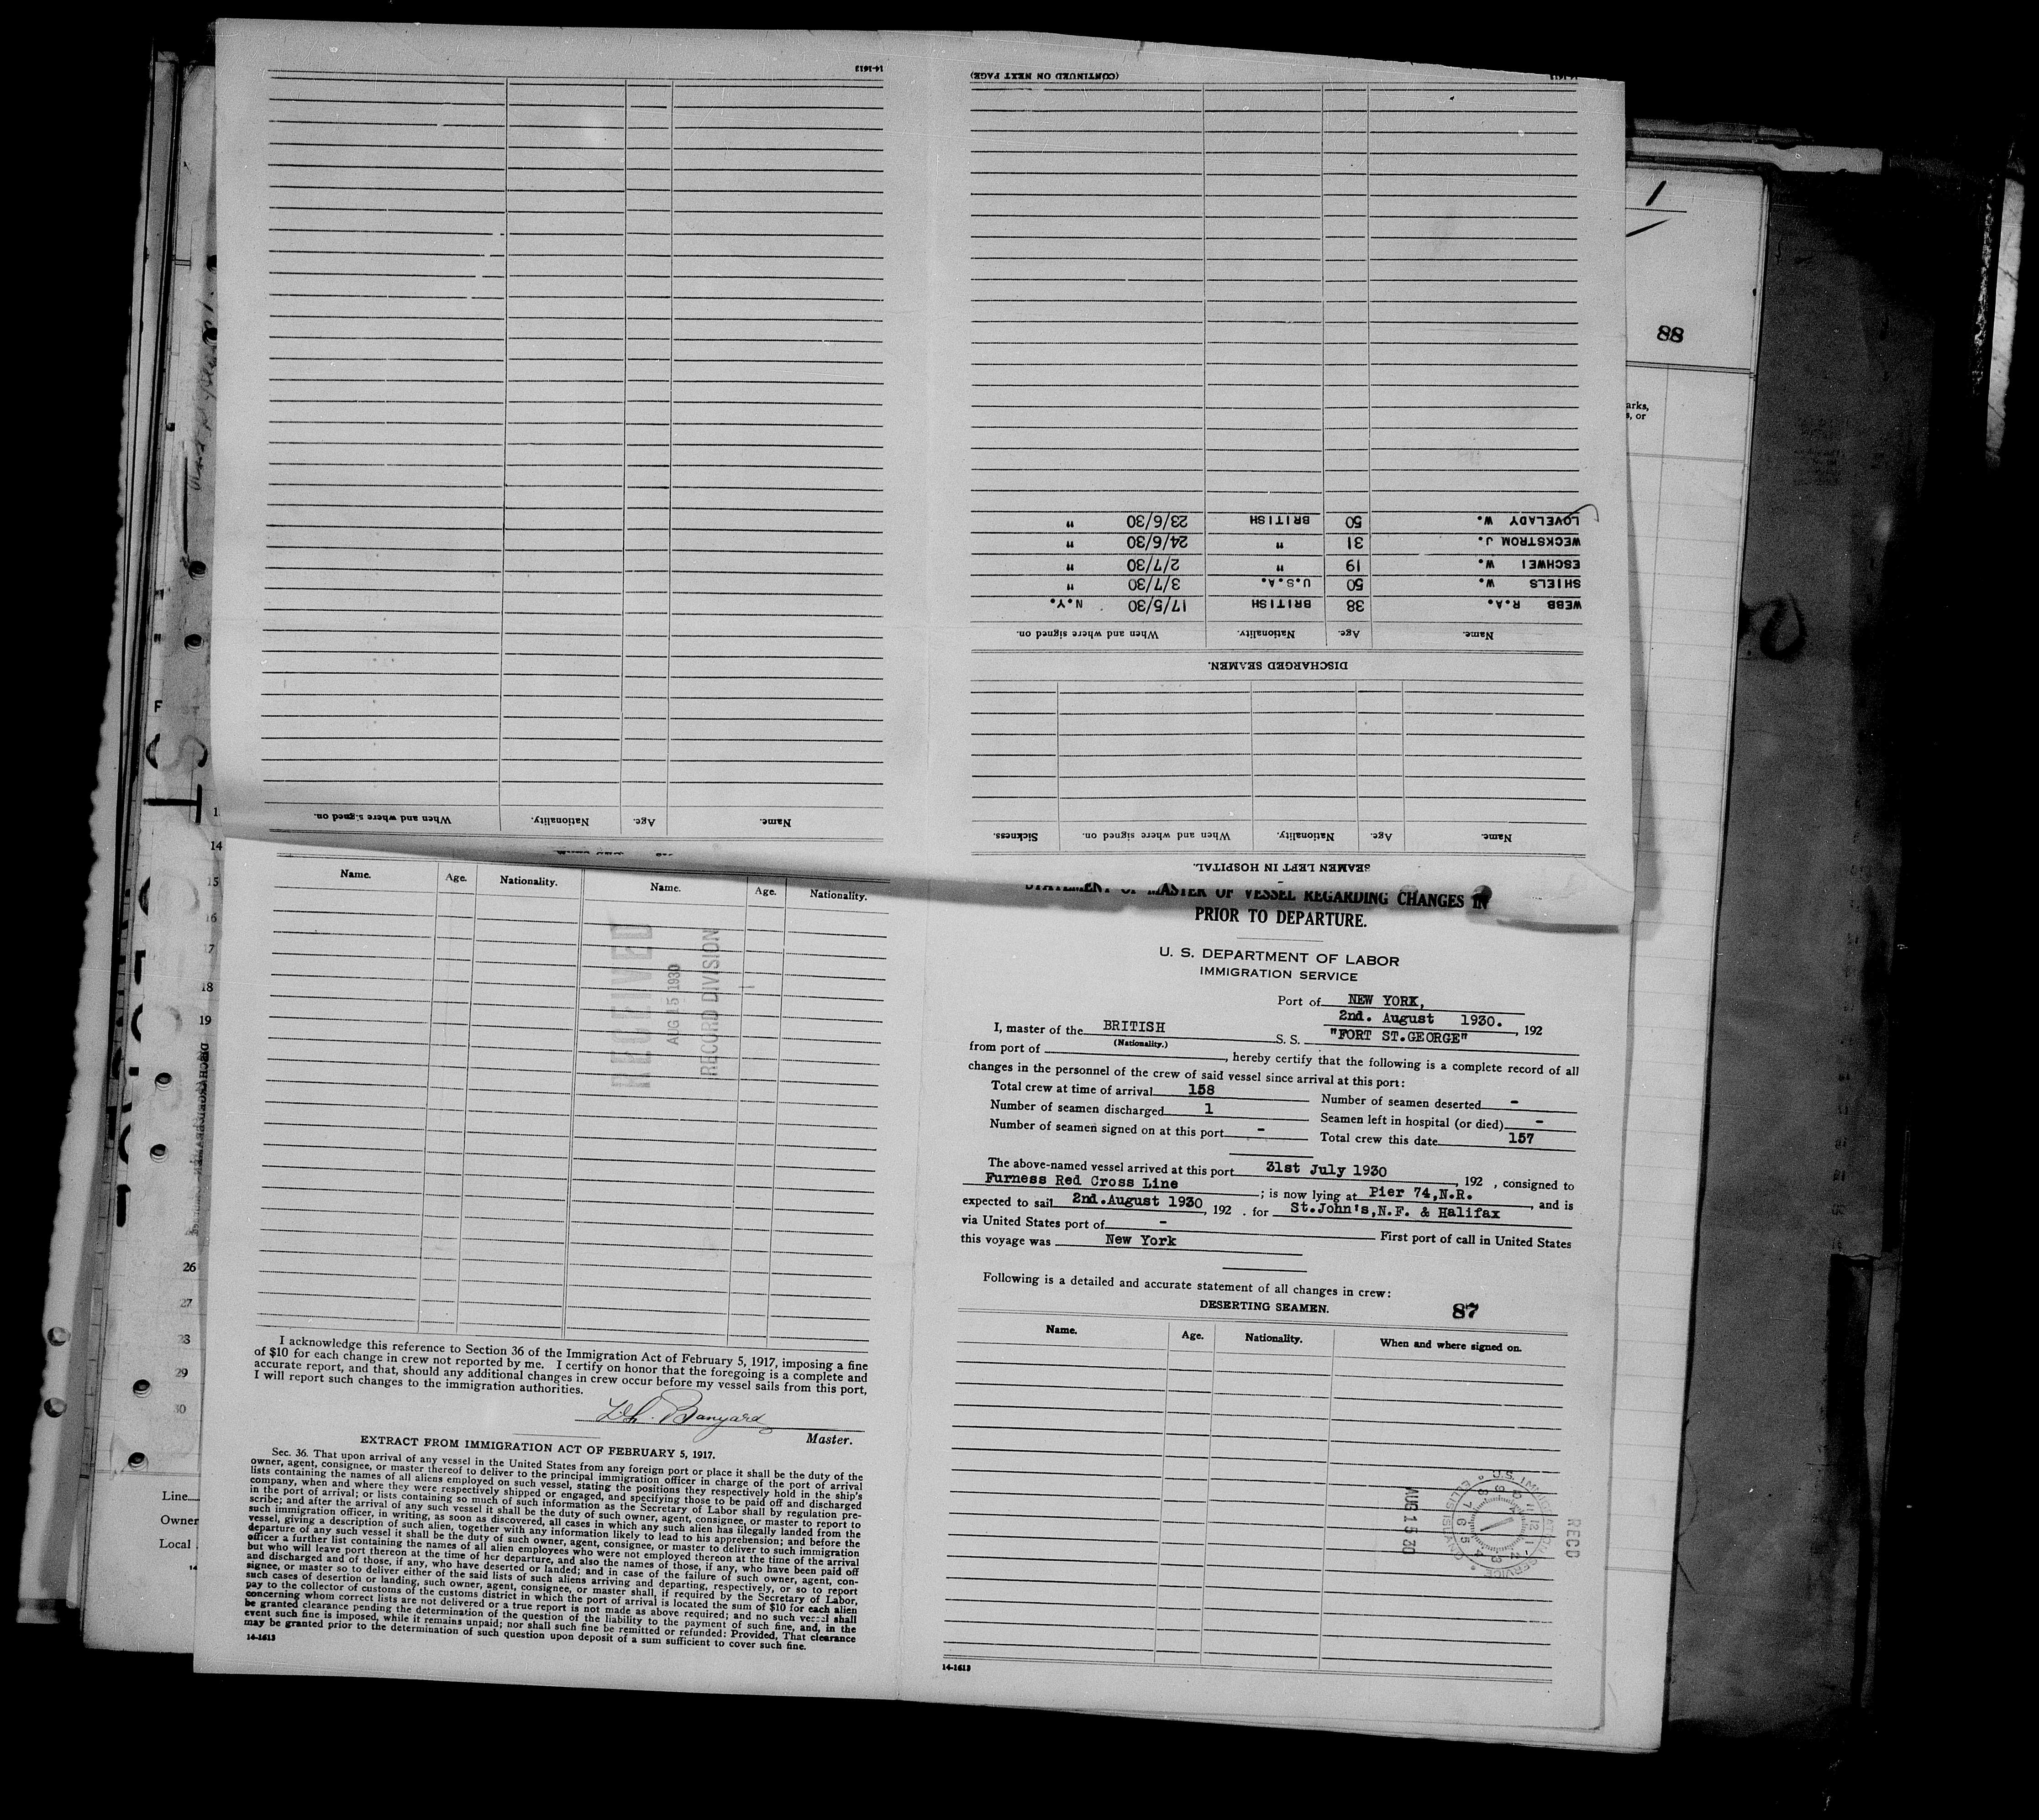 14-1613
(CONTINUED ON NEXT PAGE)
LOVELADY W. 50 BRITISH 23/6/30 "
WECKSTROM J. 31 " 24/6/30 "
ESCHWEI W. 19 " 2/7/30 "
SHIELS W. 50 U.S.A. 3/7/30 "
WEBB R.A. 38 BRITISH 17/5/30 N.Y.
Name. Age. Nationality. When and where signed on.
DISCHARGED SEAMEN.
Name. Age. Nationality. When and where signed on.
Name. Age. Nationality. When and where signed on. Sickness.
SEAMEN LEFT IN HOSPITAL.
1
88
arks,
s, or
Name. Age. Nationality. Name. Age. Nationality.
RECEIVED
AUG 15 1930
RECORD DIVISION
I acknowledge this reference to Section 36 of the Immigration Act of February 5, 1917, imposing a fine
of $10 for each change in crew not reported by me. I certify on honor that the foregoing is a complete and
accurate report, and that, should any additional changes in crew occur before my vessel sails from this port,
I will report such changes to the immigration authorities.
Banyard
Master.
EXTRACT FROM IMMIGRATION ACT OF FEBRUARY 5, 1917.
Sec. 36. That upon arrival of any vessel in the United States from any foreign port or place it shall be the duty of the
owner, agent, consignee, or master thereof to deliver to the principal immigration officer in charge of the port of arrival
lists containing the names of all aliens employed on such vessel, stating the positions they respectively hold in the ship's
company, when and where they were respectively shipped or engaged, and specifying those to be paid off and discharged
in the port of arrival; or lists containing so much of such information as the Secretary of Labor shall by regulation pre-
scribe; and after the arrival of any such vessel it shall be the duty of such owner, agent, consignee, or master to report to
such immigration officer, in writing, as soon as discovered, all cases in which any such alien has illegally landed from the
vessel, giving a description of such alien, together with any information likely to lead to his apprehension; and before the
departure of any such vessel it shall be the duty of such owner, agent, consignee, or master to deliver to such immigration
officer a further list containing the names of all alien employees who were not employed thereon at the time of the arrival
but who will leave port thereon at the time of her departure, and also the names of those, if any, who have been paid off
and discharged and of those, if any, who have deserted or landed; and in case of the failure of such owner, agent, con-
signee, or master so to deliver either of the said lists of such aliens arriving and departing, respectively, or so to report
such cases of desertion or landing, such owner, agent, consignee, or master shall, if required by the Secretary of Labor,
pay to the collector of customs of the customs district in which the port of arrival is located the sum of $10 for each alien
concerning whom correct lists are not delivered or a true report is not made as above required; and no such vessel shall
be granted clearance pending the determination of the question of the liability to the payment of such fine, and, in the
event such fine is imposed, while it remains unpaid; nor shall such fine be remitted or refunded: Provided, That clearance
may be granted prior to the determination of such question upon deposit of a sum sufficient to cover such fine.
14-1613
STATEMENT OF MASTER OF VESSEL REGARDING CHANGES IN
PRIOR TO DEPARTURE.
U. S. DEPARTMENT OF LABOR
IMMIGRATION SERVICE
Port of NEW YORK,
2nd. August 1930. , 192
I, master of the BRITISH S. S. "FORT ST.GEORGE"
(Nationality.)
from port of , hereby certify that the following is a complete record of all
changes in the personnel of the crew of said vessel since arrival at this port:
Total crew at time of arrival 158 Number of seamen deserted -
Number of seamen discharged 1 Seamen left in hospital (or died) -
Number of seamen signed on at this port - Total crew this date 157
The above-named vessel arrived at this port 31st July 1930 , 192 , consigned to
Furness Red Cross Line ; is now lying at Pier 74,N.R. , and is
expected to sail 2nd.August 1930 , 192 . for St.John's,N.F. & Halifax
via United States port of - First port of call in United States
this voyage was New York
Following is a detailed and accurate statement of all changes in crew:
DESERTING SEAMEN. 87
Name. Age. Nationality. When and where signed on.
AUG 15 30
U.S. IMMIGRATION SERVICE
ELLIS ISLAND
RECD
14-1613
14
15
16
17
18
19
26
27
28
29
30
Line
Owner
Local